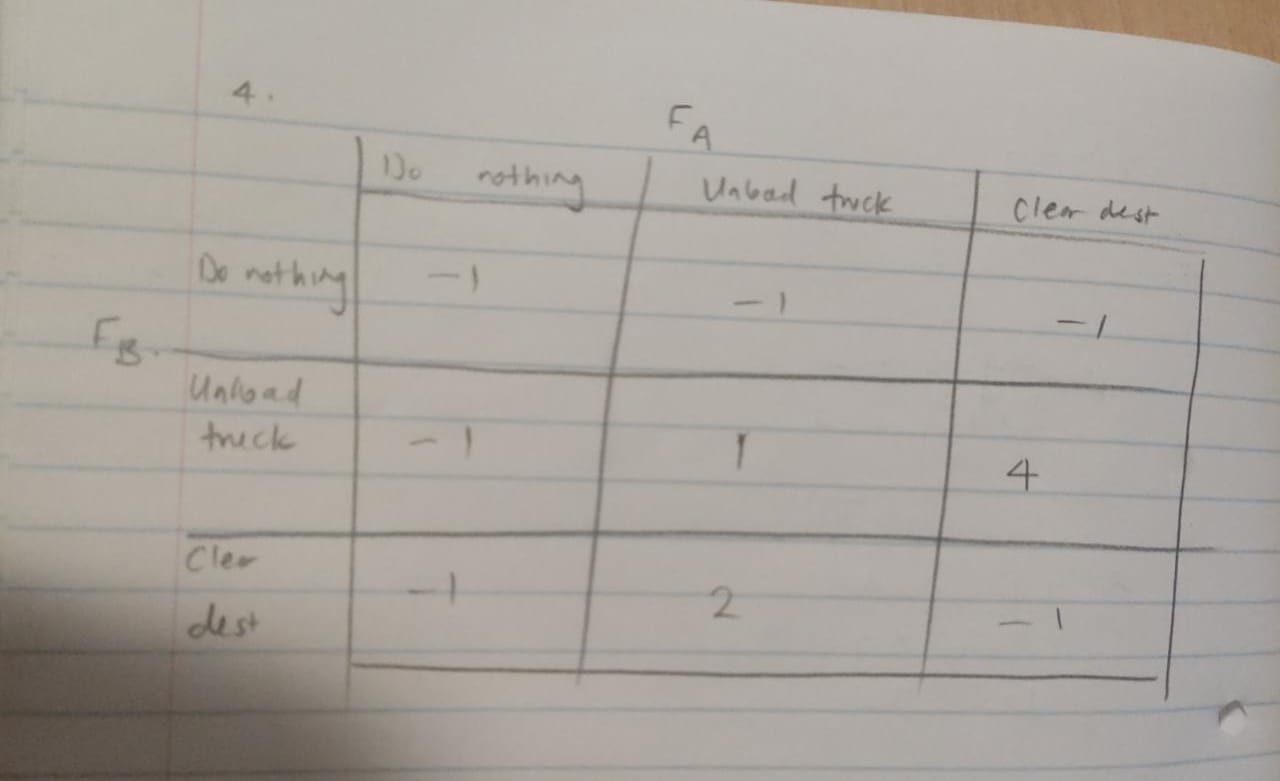 4.
F_A
Do nothing Unload truck Clear dest
Do nothing -1 -1 -1
F_B.
Unload
truck -1 1 4
Clear
dest -1 2 -1